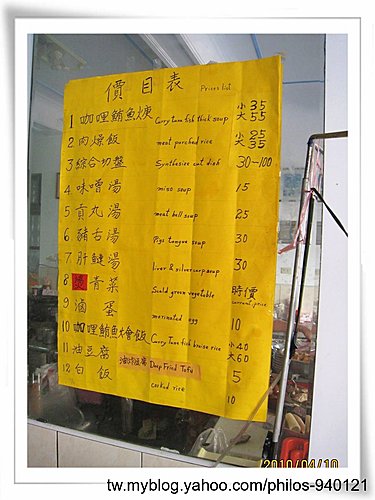 價目表 Prices list
1 咖哩鮪魚焿 Curry tuna fish thick soup 小 35 大 55
2 肉燥飯 meat parched rice 小 25 大 35
3 綜合切盤 Synthesize cut dish 30-100
4 味噌湯 miso soup 15
5 貢丸湯 meat ball soup 25
6 豬舌湯 Pigs tongue soup 30
7 肝鰱湯 liver & silver carp soup 30
8 燙青菜 Scald green vegetable 時價 current price
9 滷蛋 marinated egg 10
10 咖哩鮪魚燴飯 Curry Tuna fish braise rice 小 40 大 60
11 油豆腐 油炸豆腐 Deep Fried Tofu 5
12 白飯 cooked rice 10
2010/04/10
tw.myblog.yahoo.com/philos-940121